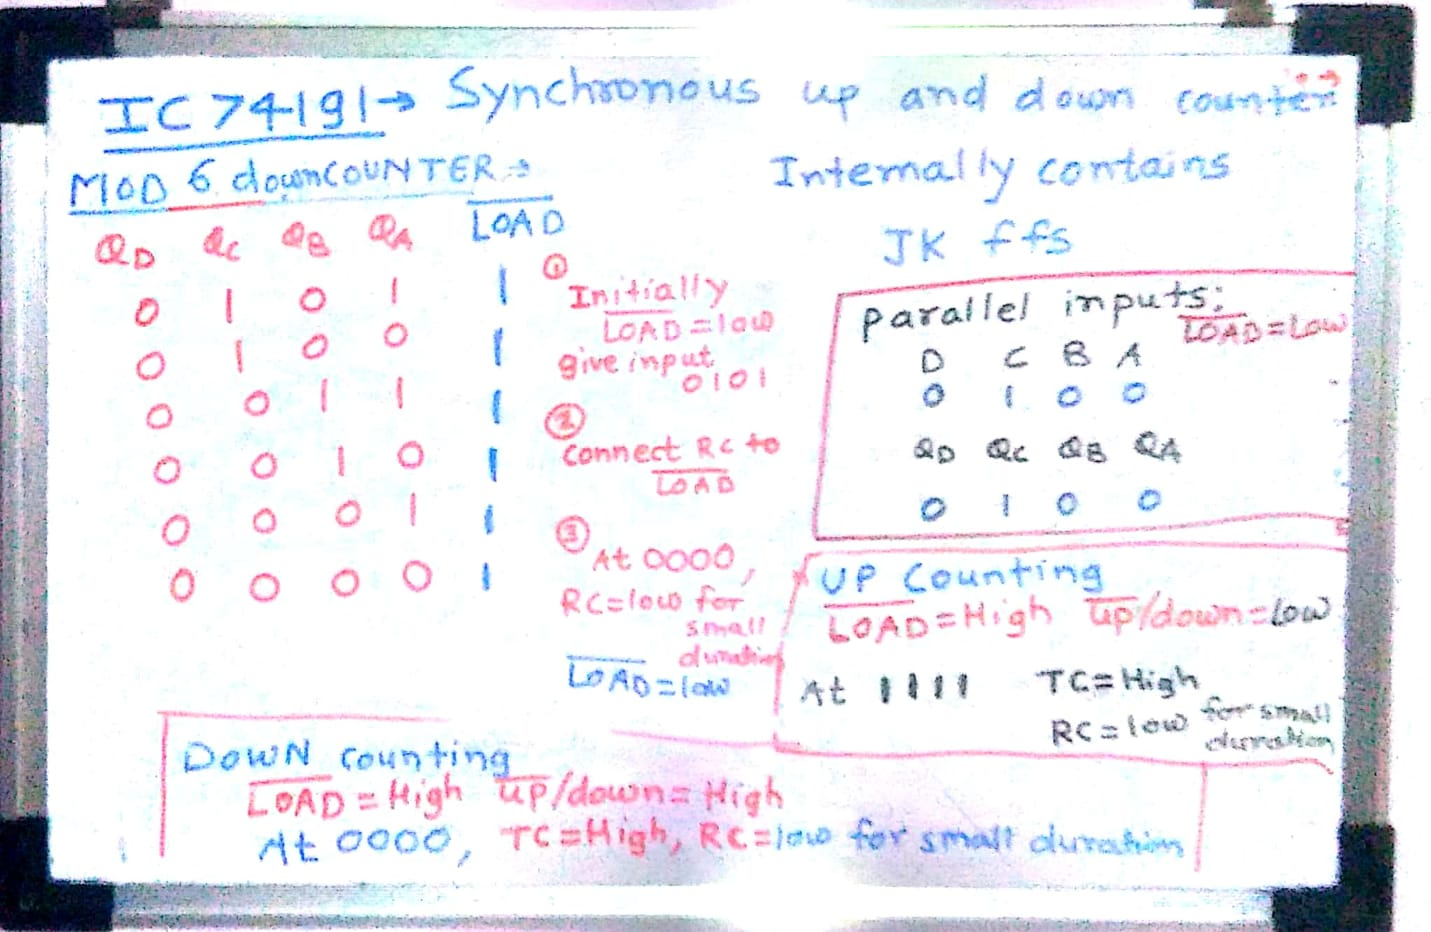 IC 74191→ Synchronous up and down counter
MOD 6 downCOUNTER→
Internally contains
JK ffs
QD QC QB QA LOAD
0 1 0 1 1
0 1 0 0 1
0 0 1 1 1
0 0 1 0 1
0 0 0 1 1
0 0 0 0 1
① Initially
LOAD=low
give input
0101
② Connect RC to
LOAD
③ At 0000,
RC=low for
small
duration
LOAD=low
parallel inputs:
LOAD=Low
D C B A
0 1 0 0
QD QC QB QA
0 1 0 0
UP Counting
LOAD=High up/down=Low
At 1111 TC=High
RC=low for small
duration
DOWN Counting
LOAD=High up/down=High
At 0000, TC=High, RC=low for small duration